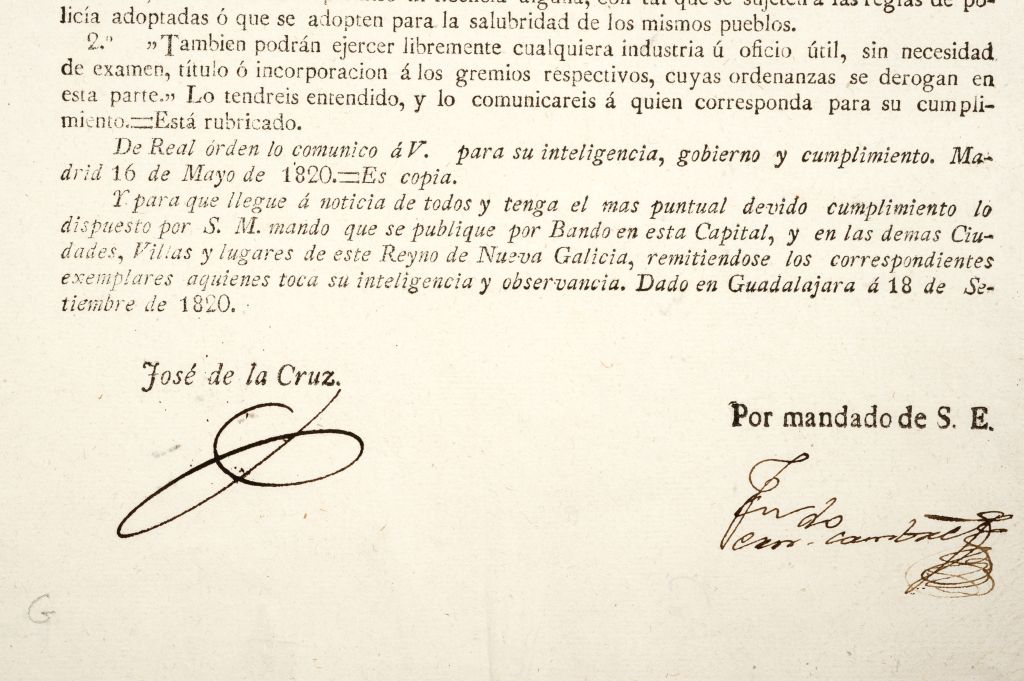 licía adoptadas ó que se adopten para la salubridad de los mismos pueblos.
2.° „Tambien podrán ejercer libremente cualquiera industria ú oficio útil, sin necesidad
de examen, título ó incorporacion á los gremios respectivos, cuyas ordenanzas se derogan en
esta parte.„ Lo tendreis entendido, y lo comunicareis á quien corresponda para su cumpli-
miento.=Está rubricado.
De Real órden lo comunico á V. para su inteligencia, gobierno y cumplimiento. Ma-
drid 16 de Mayo de 1820.=Es copia.
Y para que llegue á noticia de todos y tenga el mas puntual devido cumplimiento lo
dispuesto por S. M. mando que se publique por Bando en esta Capital, y en las demas Ciu-
dades, Villas y lugares de este Reyno de Nueva Galicia, remitiendose los correspondientes
exemplares aquienes toca su inteligencia y observancia. Dado en Guadalajara á 18 de Se-
tiembre de 1820.
José de la Cruz.
Por mandado de S. E.
G